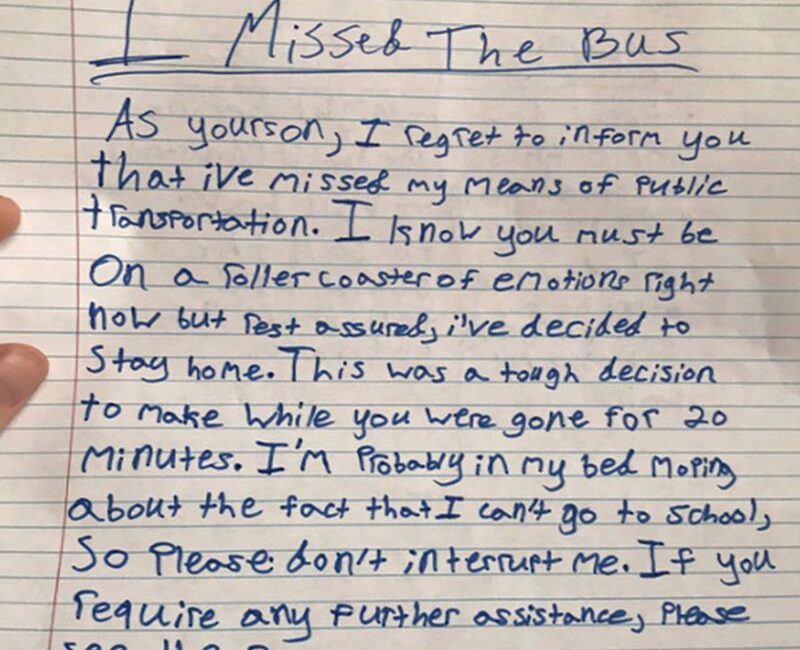 I Missed The Bus
As yourson, I regret to inform you
that ive missed my means of public
transportation. I know you must be
On a roller coaster of emotions right
now but rest assured, i've decided to
Stay home. This was a tough decision
to make while you were gone for 20
Minutes. I'm Probably in my bed Moping
about the fact that I can't go to school,
So Please don't interrupt me. If you
require any further assistance, Please
see